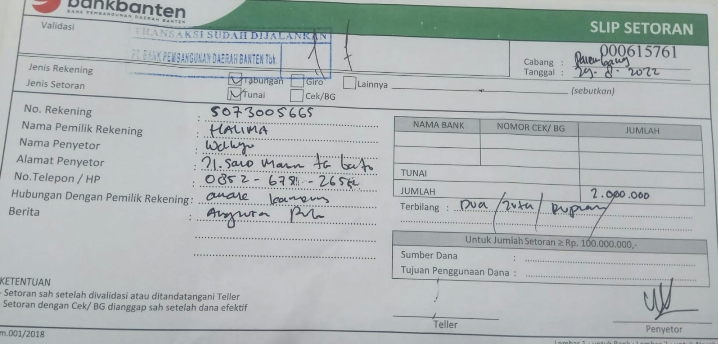 bankbanten
BANK PEMBANGUNAN DAERAH BANTEN
SLIP SETORAN
Validasi
TRANSAKSI SUDAH DIJALANKAN
PT. BANK PEMBANGUNAN DAERAH BANTEN Tbk.
000615761
Cabang :
Tanggal : 29-8-2022
Jenis Rekening Tabungan Giro Lainnya (sebutkan)
Jenis Setoran Tunai Cek/BG
No. Rekening : 5073005665
Nama Pemilik Rekening : HALIMA
Nama Penyetor :
Alamat Penyetor :
No.Telepon / HP : 0852-678
Hubungan Dengan Pemilik Rekening :
Berita :
NAMA BANK NOMOR CEK/ BG JUMLAH
TUNAI
JUMLAH 2.000.000
Terbilang : Dua / Juta / Rupiah
Untuk Jumlah Setoran ≥ Rp. 100.000.000,-
Sumber Dana :
Tujuan Penggunaan Dana :
KETENTUAN
- Setoran sah setelah divalidasi atau ditandatangani Teller
- Setoran dengan Cek/ BG dianggap sah setelah dana efektif
Teller
Penyetor
m.001/2018